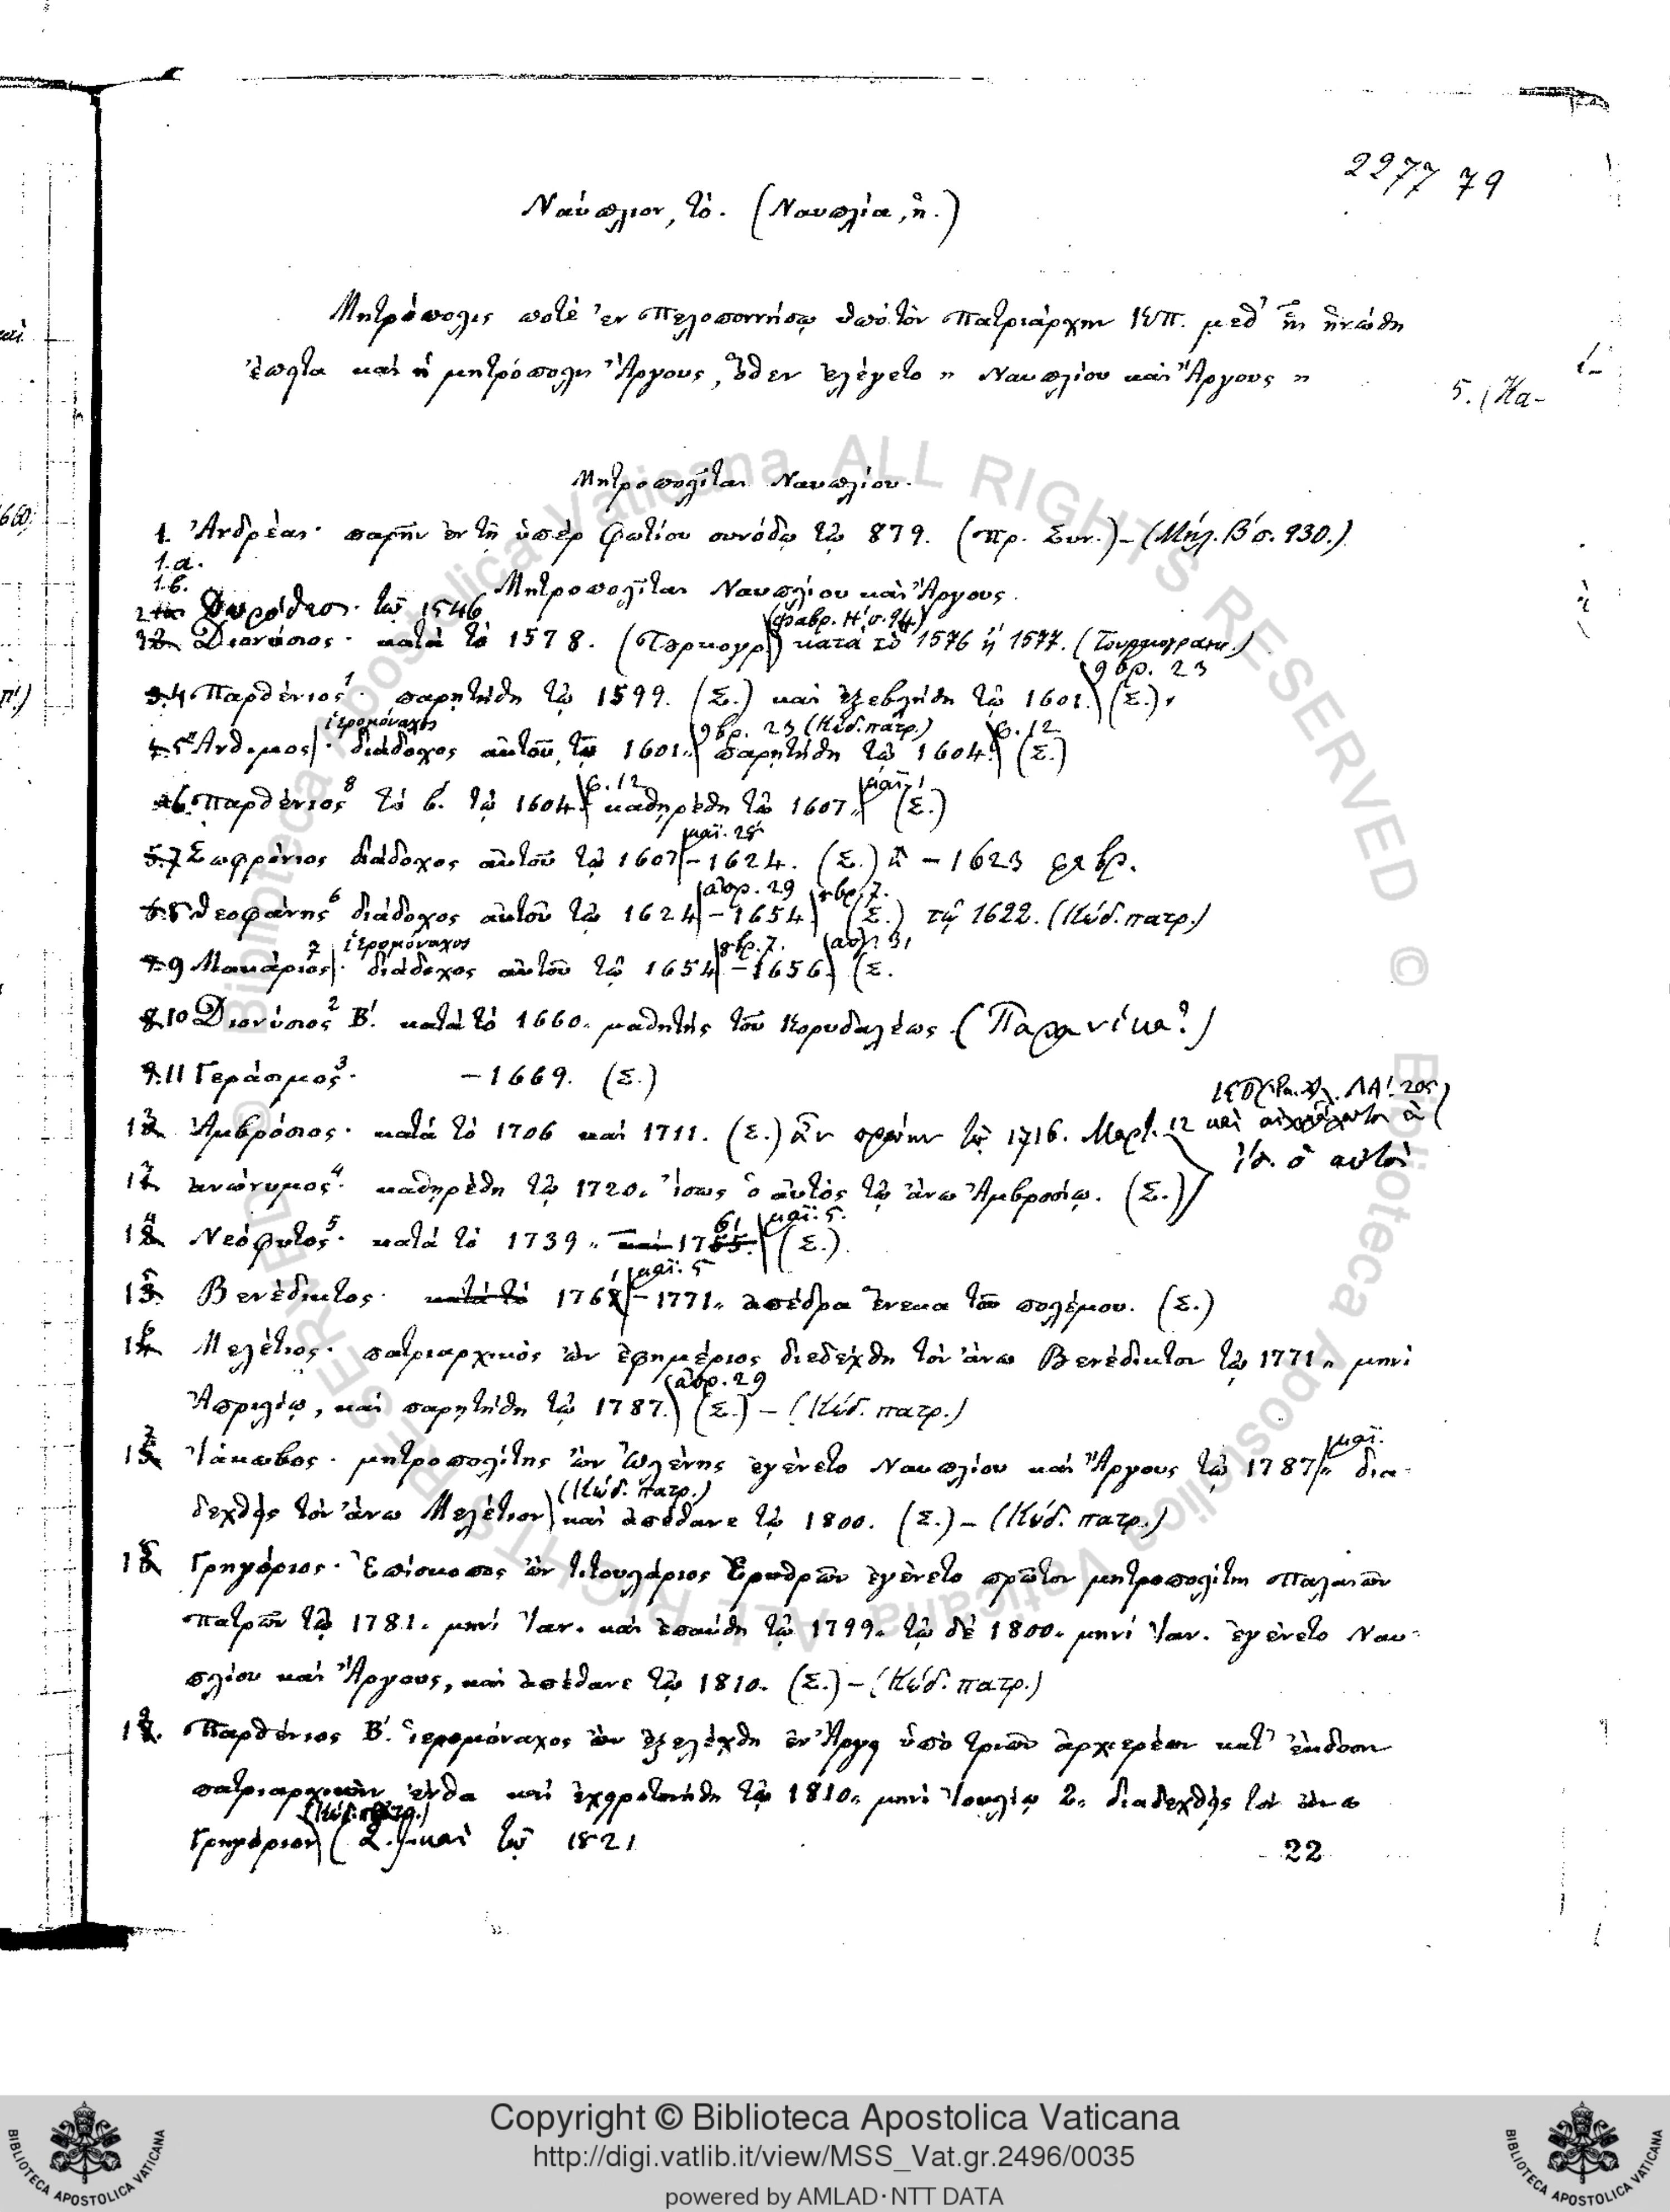 2277 79
Ναύπλιον, τό. (Ναυπλία, ἡ.)
Μητρόπολις ποτὲ ἐν Πελοποννήσῳ ὑπὸ τὸν Πατριάρχην ΚΠ. μεθ' ἧς ἡνώθη
ἔπειτα καὶ ἡ μητρόπολις Ἄργους, ὅθεν ἐλέγετο „ Ναυπλίου καὶ Ἄργους „
5. (Κα-
Μητροπολῖται Ναυπλίου.
1. Ἀνδρέας· παρῆν ἐν τῇ ὑπὲρ Φωτίου συνόδῳ τῷ 879. (Πρ. Συν.) – (Μήλ. Β΄ σ. 930.)
1.α.
1.β. Μητροπολῖται Ναυπλίου καὶ Ἄργους.
2 Δωρόθεος· τῷ 1546
(Φαβρ. Η΄, σ. 94)
3 Διονύσιος· κατὰ τὸ 1578. (Τουρκογρ.) κατὰ τὸ 1576 ἢ 1577. (Τουρκογραικ.)
9βρ. 23
4 Παρθένιος 1· παρητήθη τῷ 1599. (Σ.) καὶ ἐξεβλήθη τῷ 1601. (Σ.)
ἱερομόναχος 9βρ. 23 (Κώδ. πατρ.) φ. 12
5 Ἄνθιμος· διάδοχος αὐτοῦ, τῷ 1601. παρητήθη τῷ 1604. (Σ.)
φ. 12 μαΐ
6 Παρθένιος 8 τὸ β. τῷ 1604. καθηρέθη τῷ 1607. (Σ.)
μαΐ. 28
7 Σωφρόνιος διάδοχος αὐτοῦ τῷ 1607 – 1624. (Σ.) ἢ – 1623
29 7.
8 Θεοφάνης 6 διάδοχος αὐτοῦ τῷ 1624 – 1654. (Σ.) τῷ 1622. (Κώδ. πατρ.)
ἱερομόναχος 7.
9 Μακάριος 7· διάδοχος αὐτοῦ τῷ 1654 – 1656. (Σ.
10 Διονύσιος 2 Β΄. κατὰ τὸ 1660. μαθητὴς τοῦ Κορυδαλέως.
11 Γεράσιμος 3· – 1669. (Σ.)
12 Ἀμβρόσιος· κατὰ τὸ 1706 καὶ 1711. (Σ.) ἦν πρῴην τῷ 1716. Μαρτ. 12 καὶ
ὁ αὐτὸς
ἀνώνυμος 4· καθηρέθη τῷ 1720. ἴσως ὁ αὐτὸς τῷ ἄνω Ἀμβροσίῳ. (Σ.)
61 μαΐ. 5.
14 Νεόφυτος 5· κατὰ τὸ 1739. καὶ 1755. (Σ.).
μαΐ. 5
15 Βενέδικτος· κατὰ τὸ 1761 – 1771. ἀπέδρα ἕνεκα τοῦ πολέμου. (Σ.)
16 Μελέτιος· πατριαρχικὸς ὢν ἐφημέριος διεδέχθη τὸν ἄνω Βενέδικτον τῷ 1771. μηνὶ
ἀπρ. 29
Ἀπριλίῳ, καὶ παρητήθη τῷ 1787. (Σ.) – (Κώδ. πατρ.)
μαΐ.
17 Ἰάκωβος· μητροπολίτης ὢν Ὠλένης ἐγένετο Ναυπλίου καὶ Ἄργους τῷ 1787. δια-
(Κώδ. πατρ.)
δεχθεὶς τὸν ἄνω Μελέτιον καὶ ἀπέθανε τῷ 1800. (Σ.) – (Κώδ. πατρ.)
18 Γρηγόριος· Ἐπίσκοπος ὢν τιτουλάριος Ἐρυθρῶν ἐγένετο πρῶτον μητροπολίτης Παλαιῶν
Πατρῶν τῷ 1781. μηνὶ Ἰαν. καὶ ἐπαύθη τῷ 1799. τῷ δὲ 1800. μηνὶ Ἰαν. ἐγένετο Ναυ-
πλίου καὶ Ἄργους, καὶ ἀπέθανε τῷ 1810. (Σ.) – (Κώδ. πατρ.)
19. Παρθένιος Β΄. ἱερομόναχος ὢν ἐξελέχθη ἐν Ἄργει ὑπὸ τριῶν ἀρχιερέων κατ' ἔκδοσιν
πατριαρχικὴν ἔνθα καὶ ἐχειροτονήθη τῷ 1810. μηνὶ Ἰουλίῳ 2. διαδεχθεὶς τὸν ἄνω
(Κώδ. πατρ.)
Γρηγόριον (Σ.) καὶ τῷ 1821
22
Copyright © Biblioteca Apostolica Vaticana
http://digi.vatlib.it/view/MSS_Vat.gr.2496/0035
powered by AMLAD·NTT DATA
BIBLIOTECA APOSTOLICA VATICANA
BIBLIOTECA APOSTOLICA VATICANA